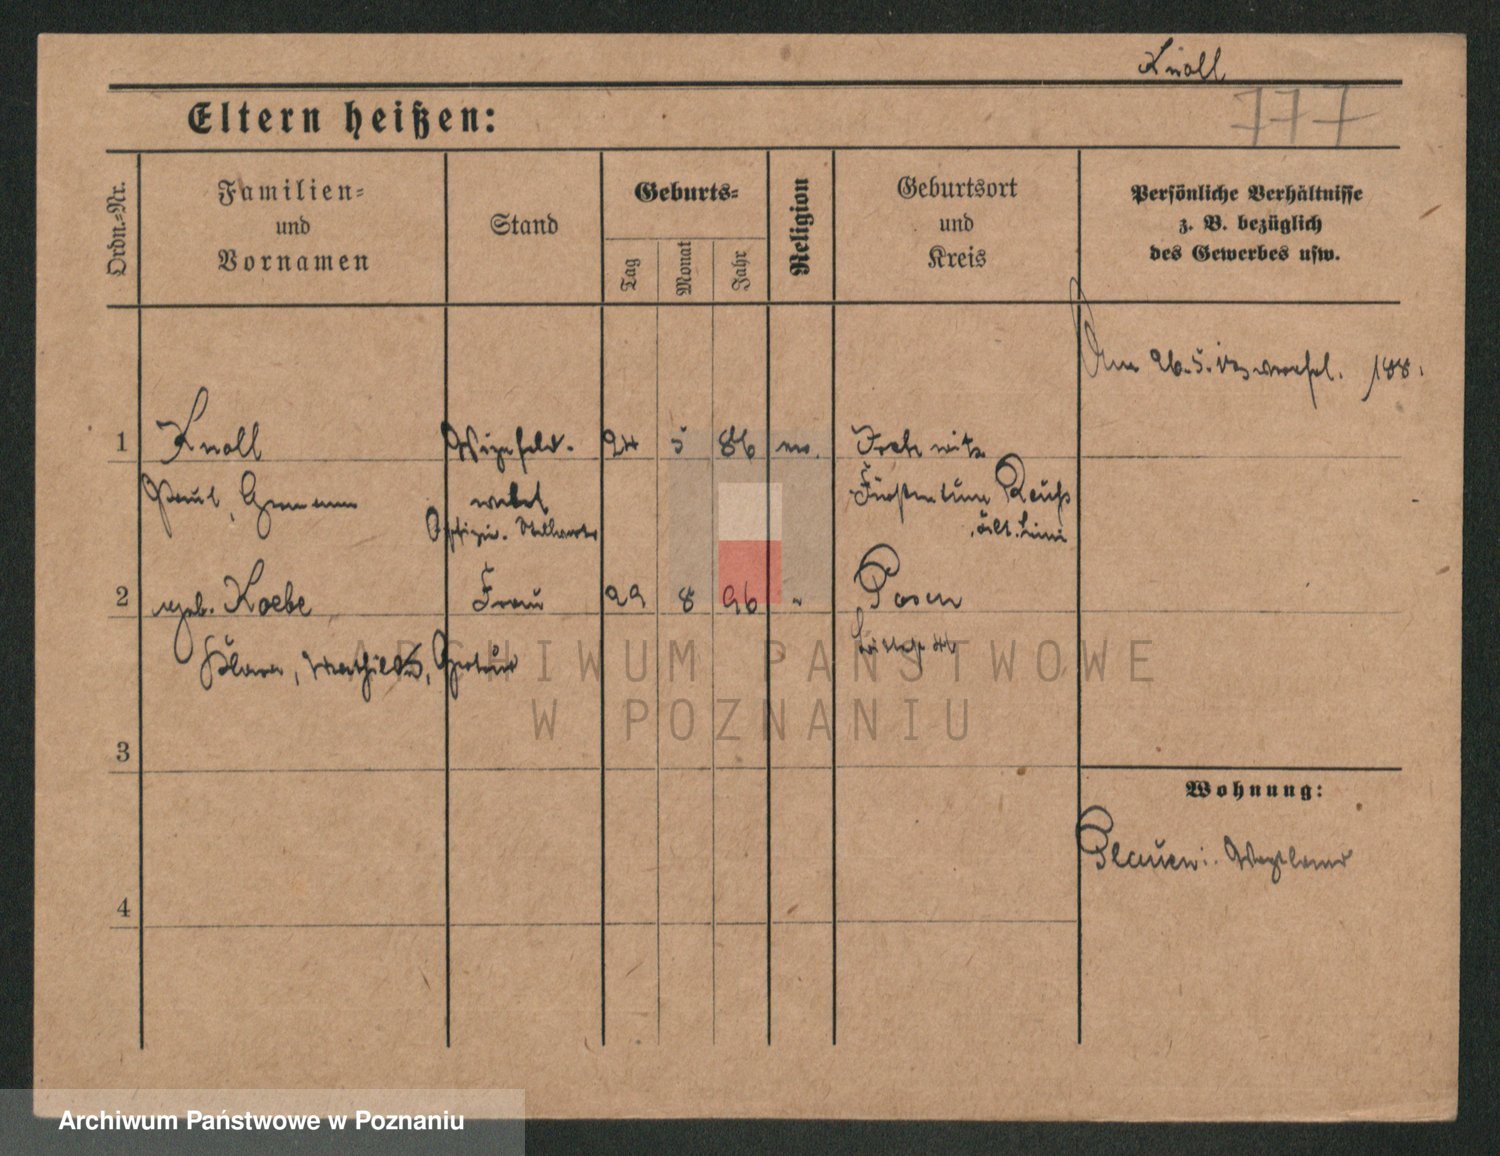 Knoll
777
Eltern heißen:
Ordn.-Nr.
Familien-
und
Vornamen
Stand
Geburts-
Tag
Monat
Jahr
Religion
Geburtsort
und
Kreis
Persönliche Verhältnisse
z. B. bezüglich
des Gewerbes usw.
Am 26.5.
1
Knoll
24
5
86
ev.
Paul,
webel
Fürstentum Reuß
Offizier. Stellvertr
ält. Linie
2
geb. Koebe
Frau
29
8
96
"
Posen
Klara, Mathilde, Gertrud
ARCHIWUM PAŃSTWOWE
W POZNANIU
3
Wohnung:
Plauen i. Vogtland
4
Archiwum Państwowe w Poznaniu